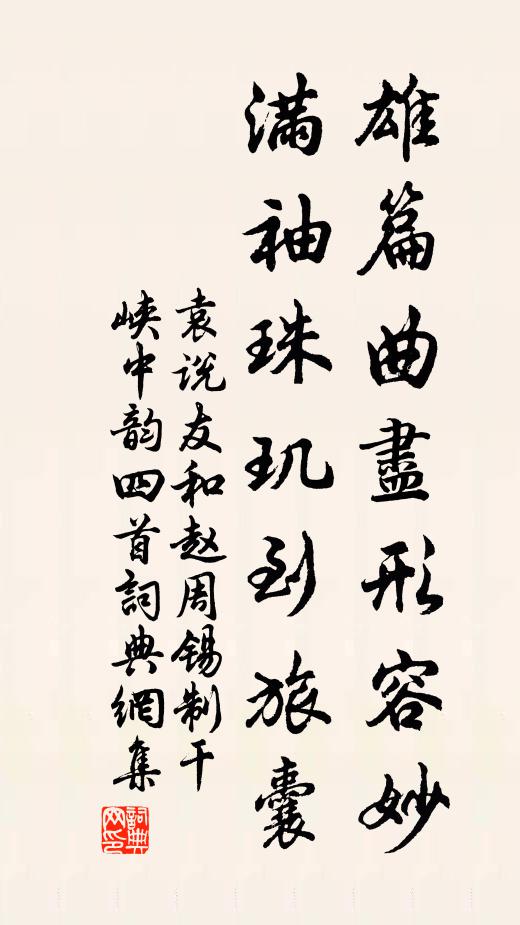 雄篇曲盡形容妙
满袖珠玑到旅囊
袁说友和赵周锡制干
峡中韵四首詞典網集
詞典
网印